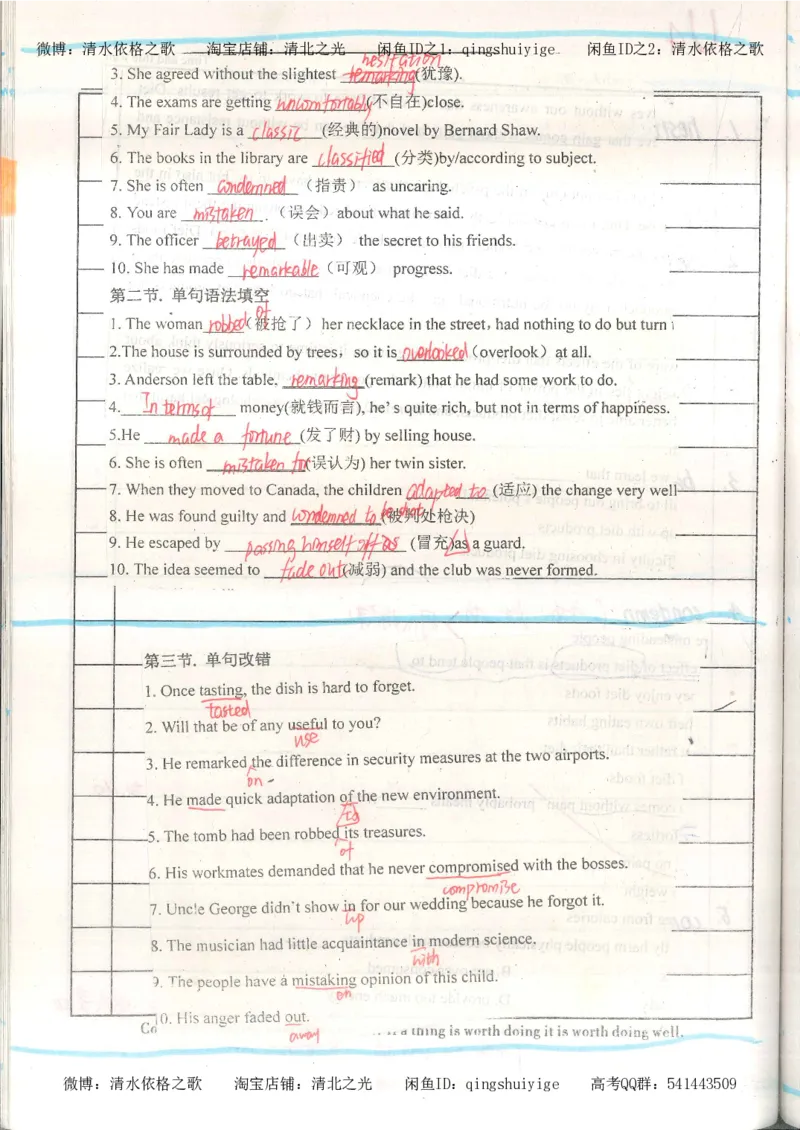 微博：清水依格之歌 淘宝店铺：清北之光 闲鱼ID之1：qingshuiyige 闲鱼ID之2：清水依格之歌
hesitation
3. She agreed without the slightest remarking(犹豫).
4. The exams are getting uncomfortably(不自在)close.
5. My Fair Lady is a classic (经典的)novel by Bernard Shaw.
6. The books in the library are classified (分类)by/according to subject.
7. She is often condemned （指责） as uncaring.
8. You are mistaken .（误会）about what he said.
9. The officer betrayed （出卖） the secret to his friends.
10. She has made remarkable（可观） progress.
第二节. 单句语法填空
of
1. The woman robbed（被抢了）her necklace in the street, had nothing to do but turn
2.The house is surrounded by trees, so it is overlooked（overlook）at all.
3. Anderson left the table, remarking (remark) that he had some work to do.
4. In terms of money(就钱而言), he's quite rich, but not in terms of happiness.
5.He made a fortune (发了财) by selling house.
6. She is often mistaken for(误认为) her twin sister.
7. When they moved to Canada, the children adapted to (适应) the change very well
8. He was found guilty and condemned to be shot(被判处枪决)
9. He escaped by passing himself off as (冒充)as a guard.
10. The idea seemed to fade out(减弱) and the club was never formed.
第三节. 单句改错
1. Once tasting, the dish is hard to forget.
tasted
2. Will that be of any useful to you?
use
3. He remarked the difference in security measures at the two airports.
on
4. He made quick adaptation of the new environment.
to
5. The tomb had been robbed its treasures.
of
6. His workmates demanded that he never compromised with the bosses.
compromise
7. Uncle George didn't show in for our wedding because he forgot it.
up
8. The musician had little acquaintance in modern science.
with
9. The people have a mistaking opinion of this child.
on
10. His anger faded out.
away
thing is worth doing it is worth doing well.
微博：清水依格之歌 淘宝店铺：清北之光 闲鱼ID：qingshuiyige 高考QQ群：541443509